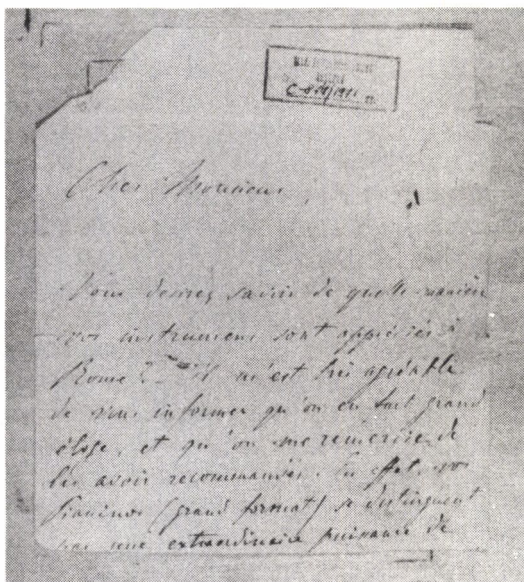 Cher Monsieur,
Vous desirez savoir de quelle manière
vos instrumens sont appréciés à
Rome? – il m'est très agréable
de vous informer qu'on en fait grand
éloge, et qu'on me remercie de
les avoir recommandés. En effet, vos
Pianinos (grand format) se distinguent
par une extraordinaire puissance de